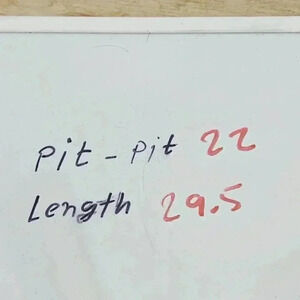 Pit - Pit 22
Length 29.5